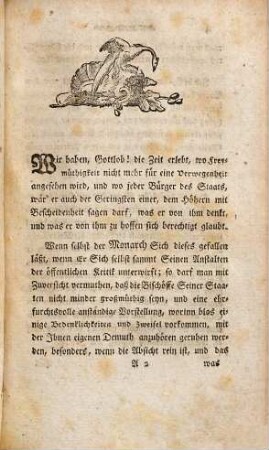 Wir haben, Gottlob! die Zeit erlebt, wo Frey-
müthigkeit nicht mehr für eine Verwegenheit
angesehen wird, und wo jeder Bürger des Staats,
wär' er auch der Geringsten einer, dem Höhern
mit Bescheidenheit sagen darf, was er von ihm denkt,
und was er von ihm zu hoffen sich berechtigt glaubt.
Wenn selbst der Monarch Sich dieses gefallen
läßt, wenn Er Sich selbst sammt Seinen Anstalten
der öffentlichen Kritik unterwirft; so darf man mit
Zuversicht vermuthen, daß die Bischöffe Seiner Staa-
ten nicht minder großmüthig seyn, und eine ehr-
furchtsvolle anständige Vorstellung, worinn blos ei-
nige Bedenklichkeiten und Zweifel vorkommen, mit
der Ihnen eigenen Demuth anzuhören geruhen wer-
den, besonders, wenn die Absicht rein ist, und das
A 2 was